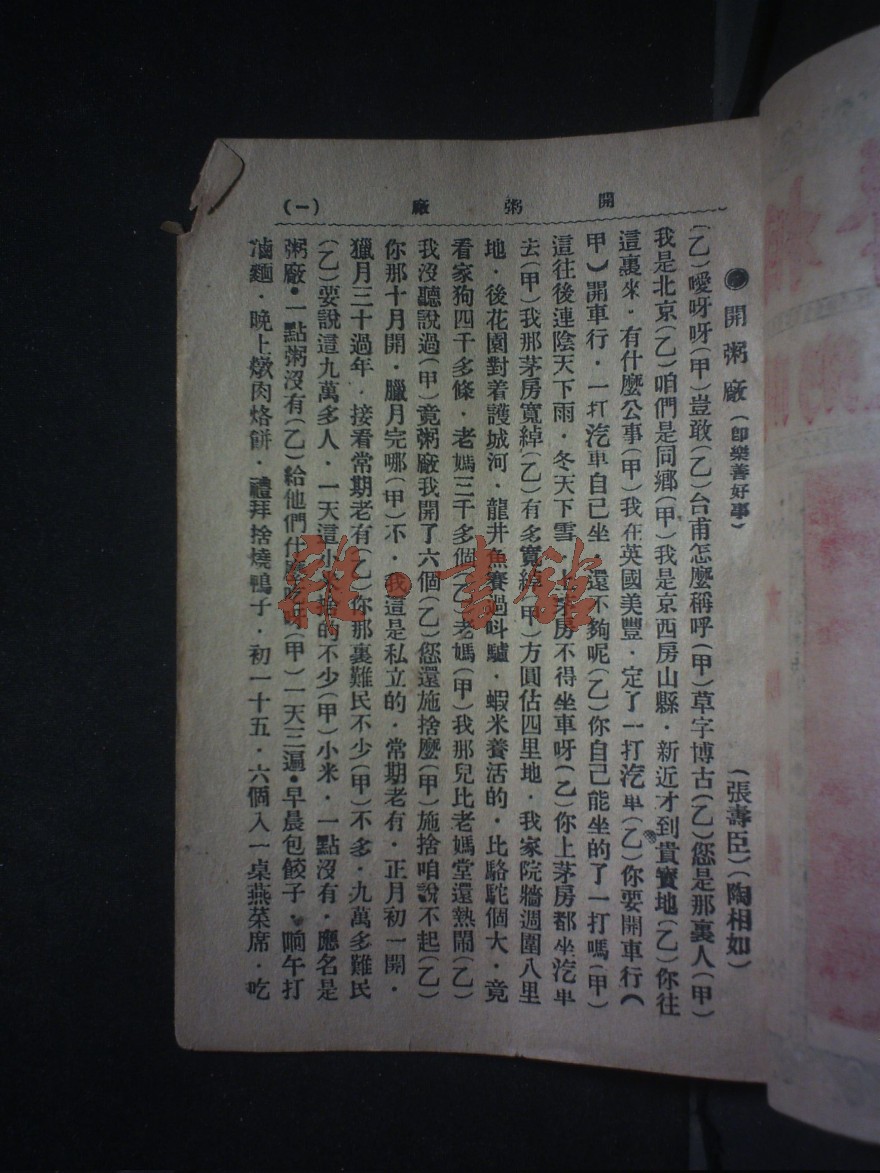 開粥廠 (一)
●開粥廠(即樂善好事) (張壽臣)(陶相如)
(乙)噯呀呀(甲)豈敢(乙)台甫怎麼稱呼(甲)草字博古(乙)您是那裏人(甲)
我是北京(乙)咱們是同鄉(甲)我是京西房山縣·新近才到貴寶地(乙)你往
這裏來·有什麼公事(甲)我在英國美豐·定了一打汽車(乙)你要開車行(
甲)開車行·一打汽車自己坐·還不夠呢(乙)你自己能坐的了一打嗎(甲)
這往後連陰天下雨·冬天下雪·上茅房不得坐車呀(乙)你上茅房都坐汽車
去(甲)我那茅房寬綽(乙)有多寬綽(甲)方圓佔四里地·我家院牆週圍八里
地·後花園對着護城河·龍井魚賽過呌驢·蝦米養活的·比駱駝個大·竟
看家狗四千多條·老媽三千多個(乙)老媽(甲)我那兒比老媽堂還熱鬧(乙)
我沒聽說過(甲)竟粥廠我開了六個(乙)您還施捨麼(甲)施捨咱說不起(乙)
你那十月開·臘月完哪(甲)不·我這是私立的·常期老有·正月初一開·
獵月三十過年·接着常期老有(乙)你那裏難民不少(甲)不多·九萬多難民
(乙)要說這九萬多人·一天這小米捨的不少(甲)小米·一點沒有·應名是
粥廠·一點粥沒有(乙)給他們什麼吃呀(甲)一天三遍·早晨包餃子·晌午打
滷麵·晚上燉肉烙餅·禮拜捨燒鴨子·初一十五·六個人一桌燕菜席·吃
雜·書館